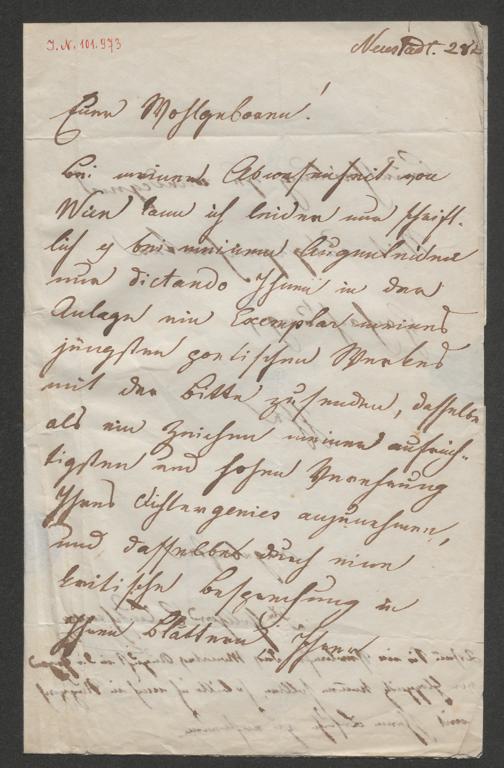 I. N. 101.973
Neustadt. 28/2
Euer Wohlgeboren!
Bei meiner Abwesenheit von
Wien kann ich leider nur schrift-
lich u bei meinem Augenleiden
nur dictando Ihnen in der
Anlage ein Exemplar meines
jüngsten poetischen Werkes
mit der Bitte zusenden, dasselbe
als ein Zeichen meiner aufrich-
tigsten und hohen Verehrung
Ihres Dichtergenies anzunehmen,
und dasselbe durch eine
kritische Besprechung in
Ihren Blättern Ihren